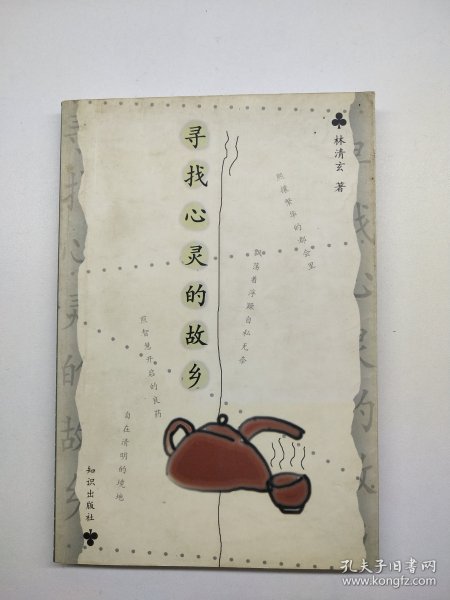 林清玄 著
寻找心灵的故乡
熙攘繁华的都会里
飘荡着浮躁自私无奈
煎智慧开启的良药
自在清明的境地
知识出版社
孔夫子旧书网
www.kongfz.com